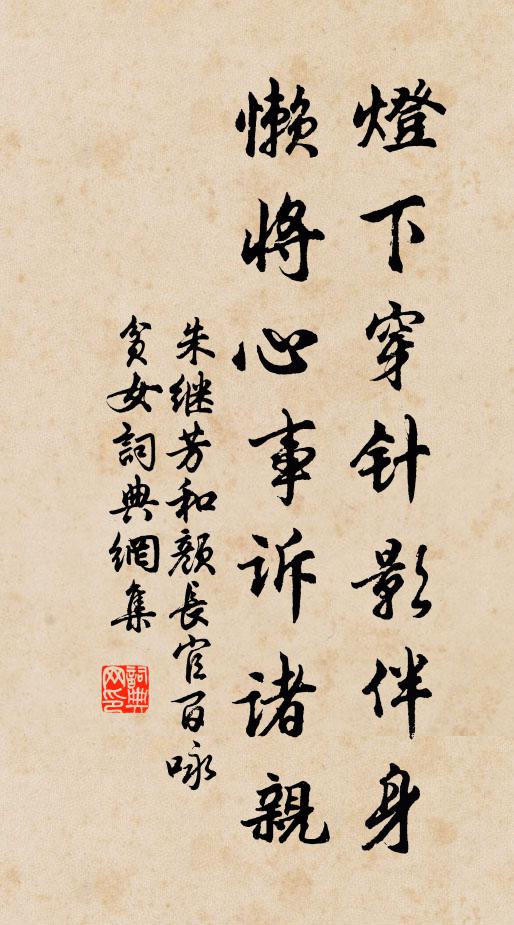 燈下穿针影伴身
懒將心事訴諸親
朱继芳和顏長官百咏
貧女詞典網集
詞典网印